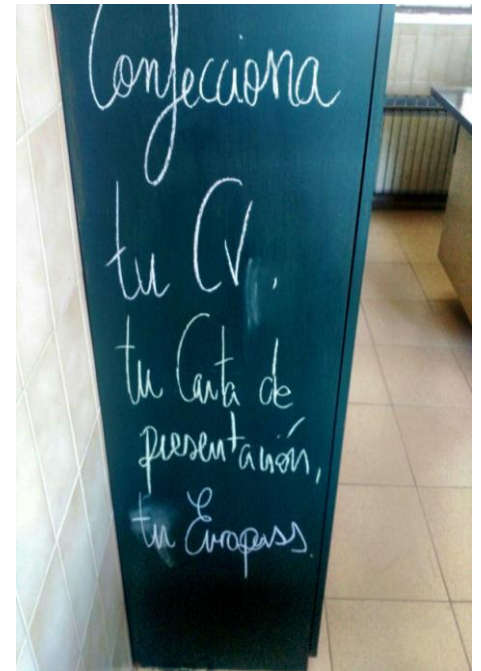 Confecciona
tu CV,
tu Carta de
presentación,
tu Europass.